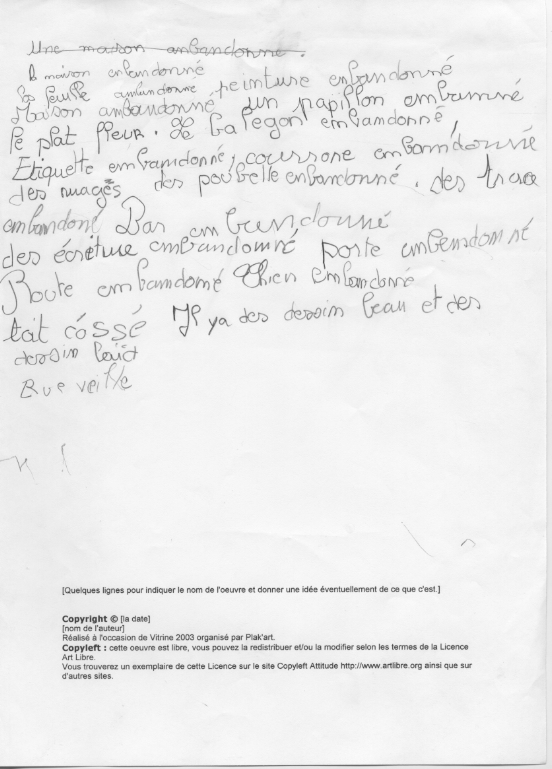 Une maison anbandonne.
la maison enbandonné
la feuille ambandonne peinture enbandonné
Maison ambandonné un papillon embanné
le plat fleur. de balegon embandonné,
Etiquette embamdonné, courssone embamdonnée
des nuages des poubelle enbandonné. des trace
embandoné Bar embundonné
des écriture embandomné porte embendomné
Route embandomé Chien embandonné
toit cóssé Il ya des dessim beau et des
dessim laid
Rue veille
[Quelques lignes pour indiquer le nom de l'oeuvre et donner une idée éventuellement de ce que c'est.]
Copyright © [la date]
[nom de l'auteur]
Réalisé à l'occasion de Vitrine 2003 organisé par Plak'art.
Copyleft : cette oeuvre est libre, vous pouvez la redistribuer et/ou la modifier selon les termes de la Licence
Art Libre.
Vous trouverez un exemplaire de cette Licence sur le site Copyleft Attitude http://www.artlibre.org ainsi que sur
d'autres sites.